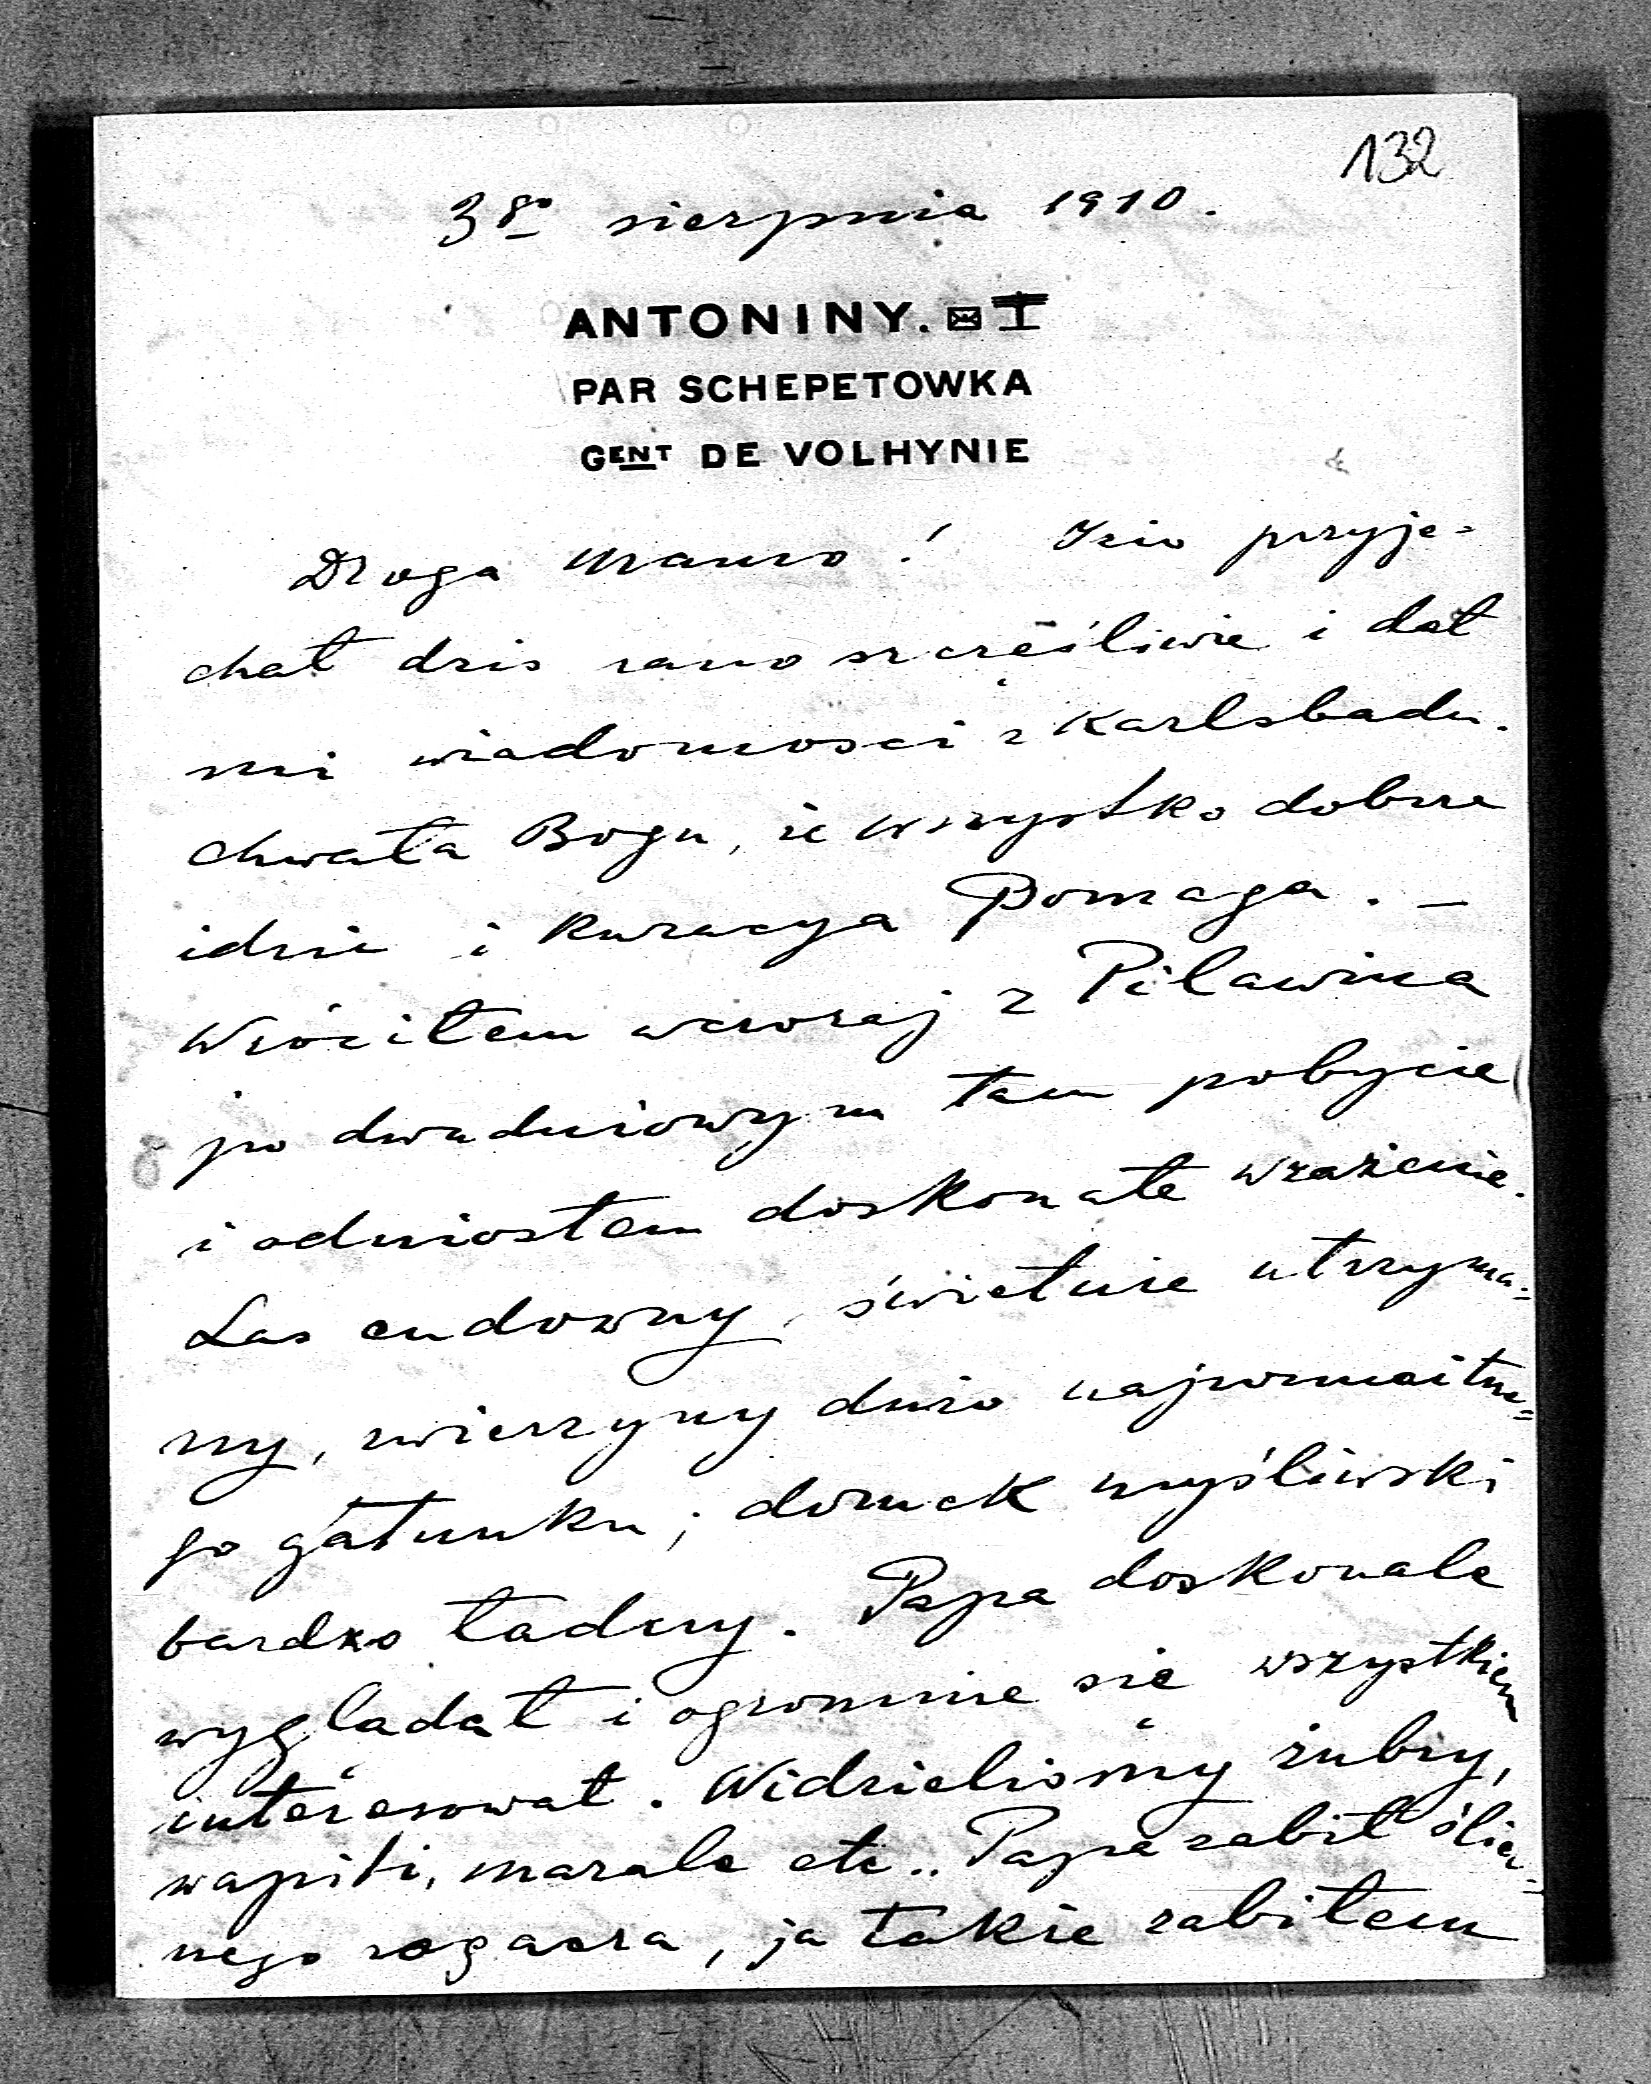 132
3go sierpnia 1910.
ANTONINY.
PAR SCHEPETOWKA
GENT DE VOLHYNIE
Droga Mamo! Izio przyje=
chał dzis rano szczęśliwie i dał
mi wiadomosci z Karlsbadu.
chwała Bogu, że wszystko dobrze
idzie i kuracya Pomaga. –
Wróciłem wczoraj z Pilawina
po dwudniowym tam pobycie
i odniosłem doskonałe wrażenie.
Las cudowny, świetnie utrzyma=
ny, zwierzyny dużo najrozmaitsze=
go gatunku; domek myśliwski
bardzo ładny. Papa doskonale
wyglądał i ogromnie się wszystkiem
interesował. Widzieliśmy żubry,
wapiti, marale etc.. Papa zabił ślicz=
nego rogacza, ja także zabiłem